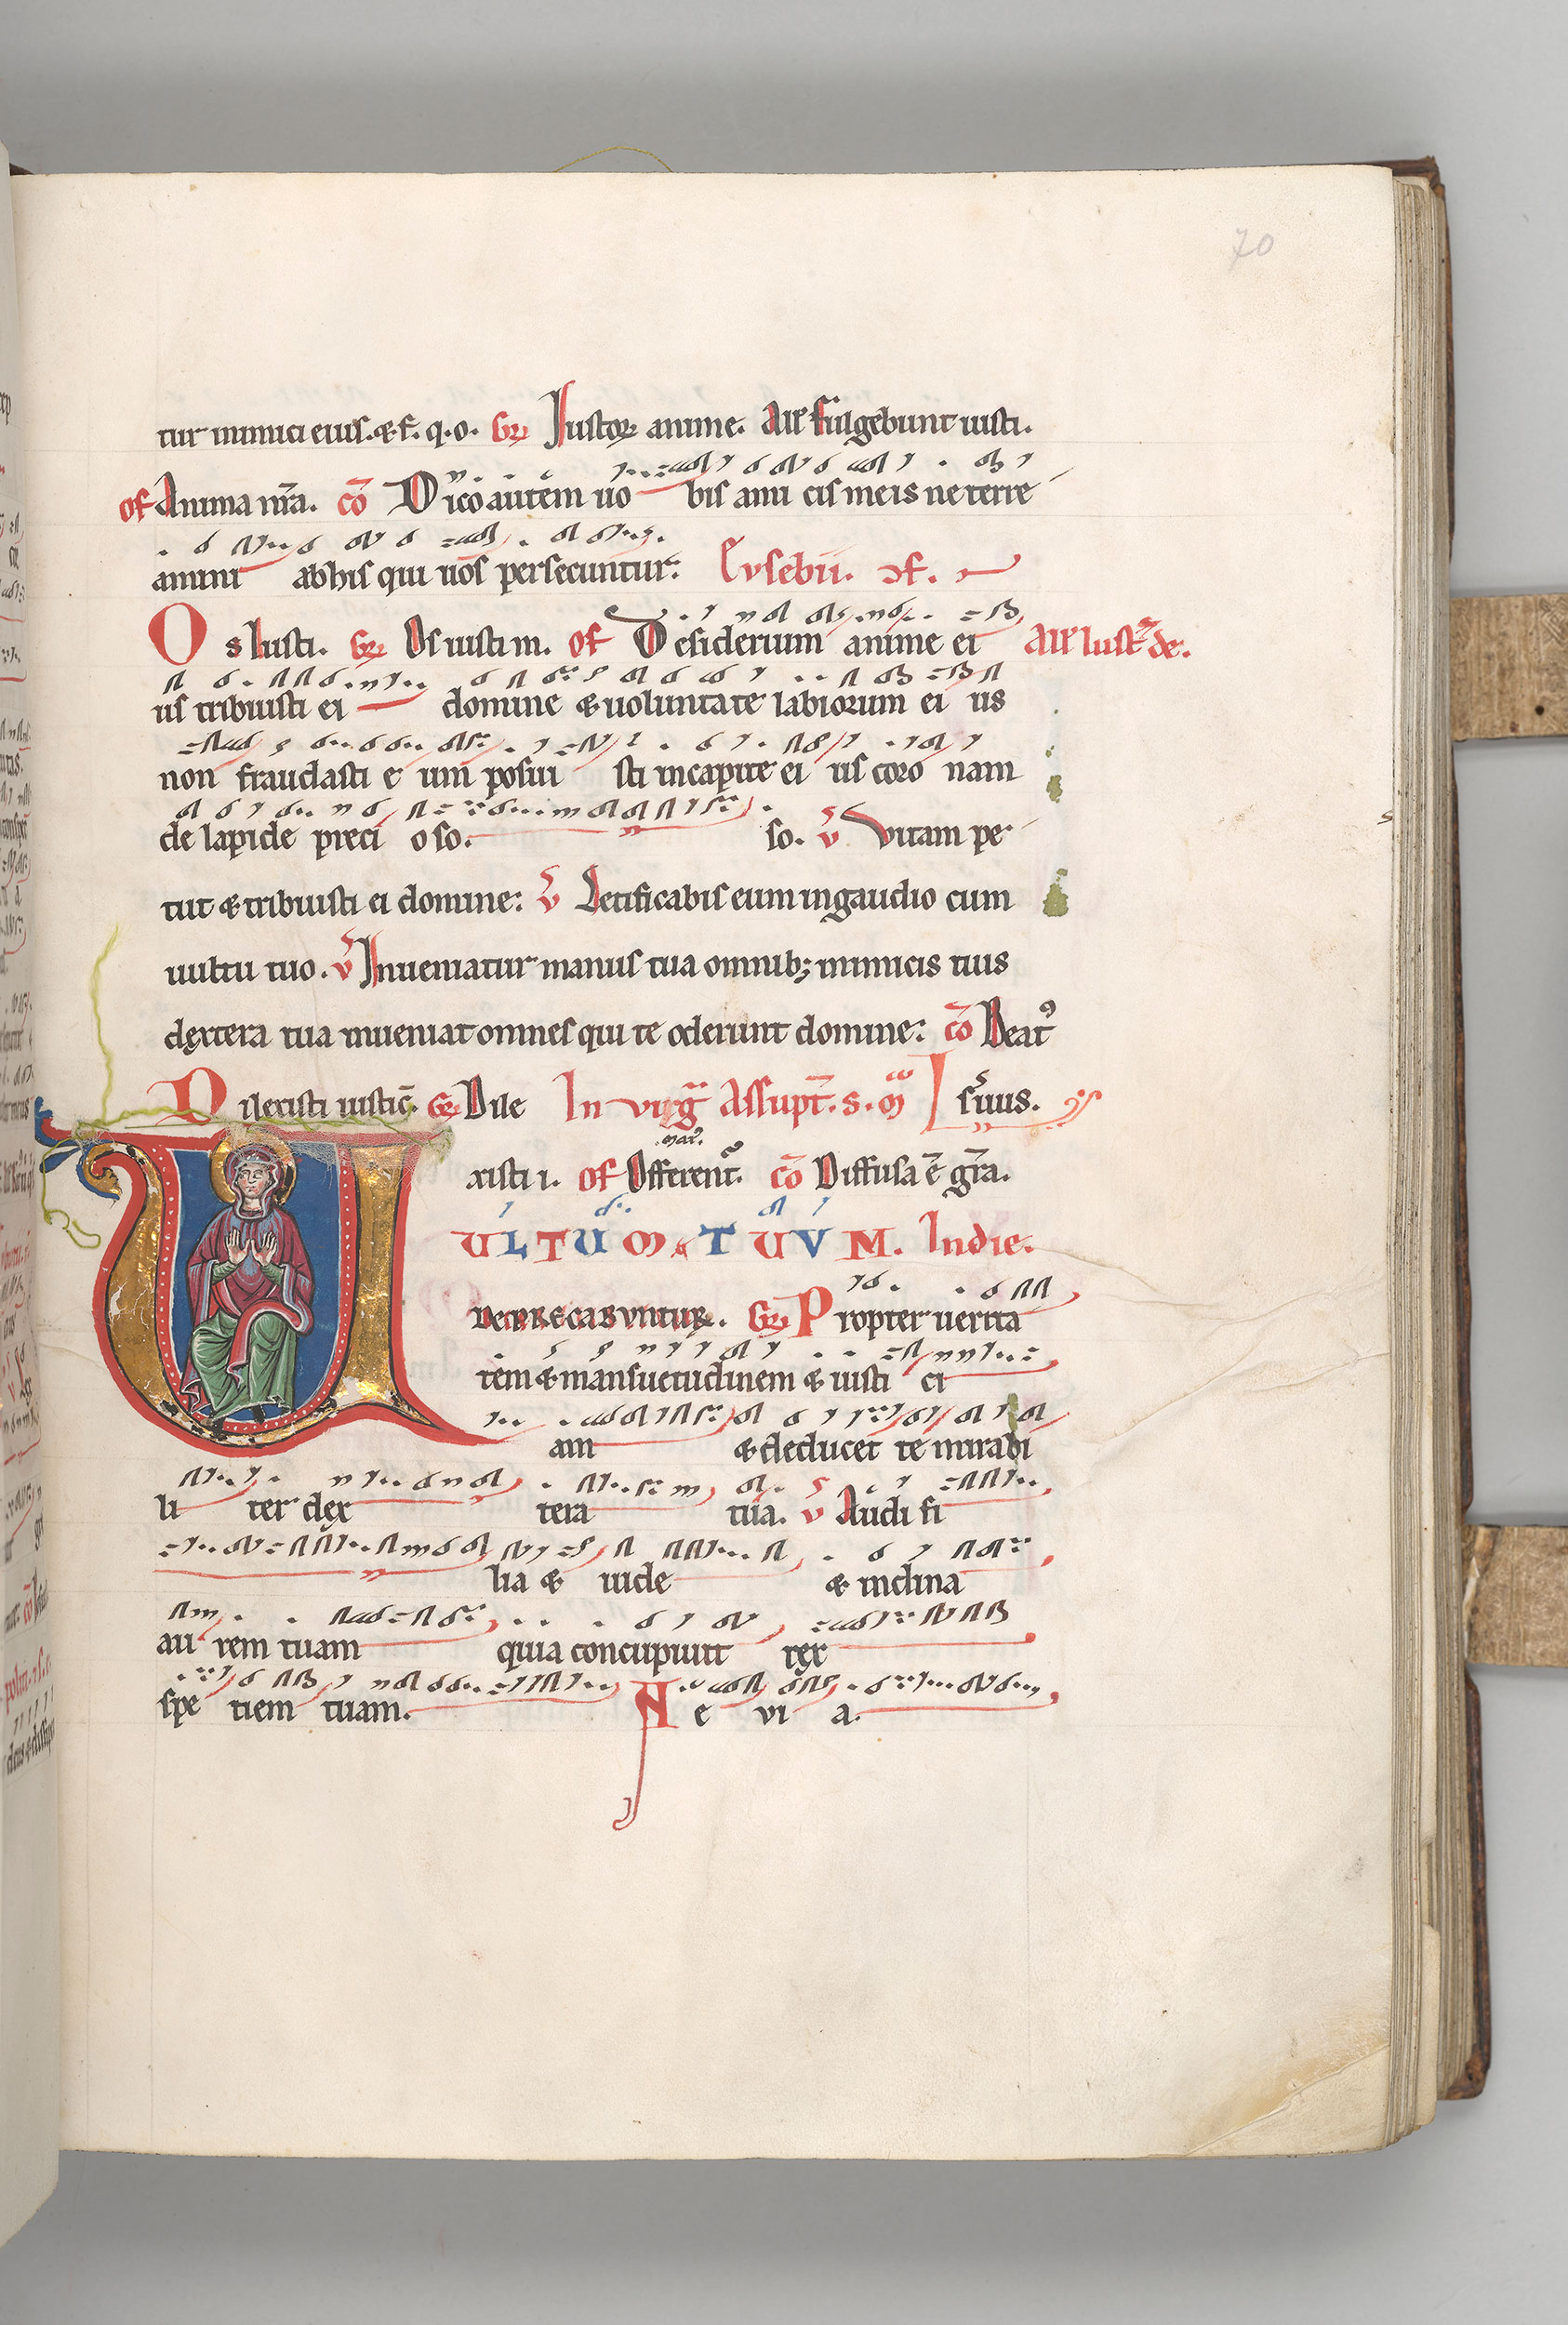 70
tur inimici eius. & f. q. o. Gr̄ Iustoꝝ anime. Aɫɫ Fulgebunt iusti.
of Anima nr̄a. cō Dico autem uo bis ami cis meis ne terre
amini ab his qui uos persecuntur. Eusebii. ꝯf.
Os Iusti. Gr̄ Os iusti m. of Desiderium anime ei Aɫɫ Iust̄ de.
us tribuisti ei domine & uoluntate labiorum ei us
non fraudasti e um posui sti in capite ei us coro nam
de lapide preci oso. so. v̄ Vitam pe
tiit & tribuisti ei domine: v̄ Letificabis eum in gaudio cum
uultu tuo. v̄ Inueniatur manus tua omnib; inimicis tuis
dextera tua inueniat omnes qui te oderunt domine: cō Beatꝰ
Dilexisti iustic̄. Gr̄ Dile In virḡ Assupt̄. s. M̄ suus. ꝓs
xisti i. of Offerent̄. mai. cō Diffusa ē gr̄a.
VULTUM TUUM. In die.
DEPRECABUNTUR. Gr̄ Propter uerita
tem & mansuetudinem & iusti ci
am & deducet te mirabi
li ter dex tera tua. v̄ Audi fi
lia & uide & inclina
au rem tuam quia concupiuit rex
spe tiem tuam. A e vi a.